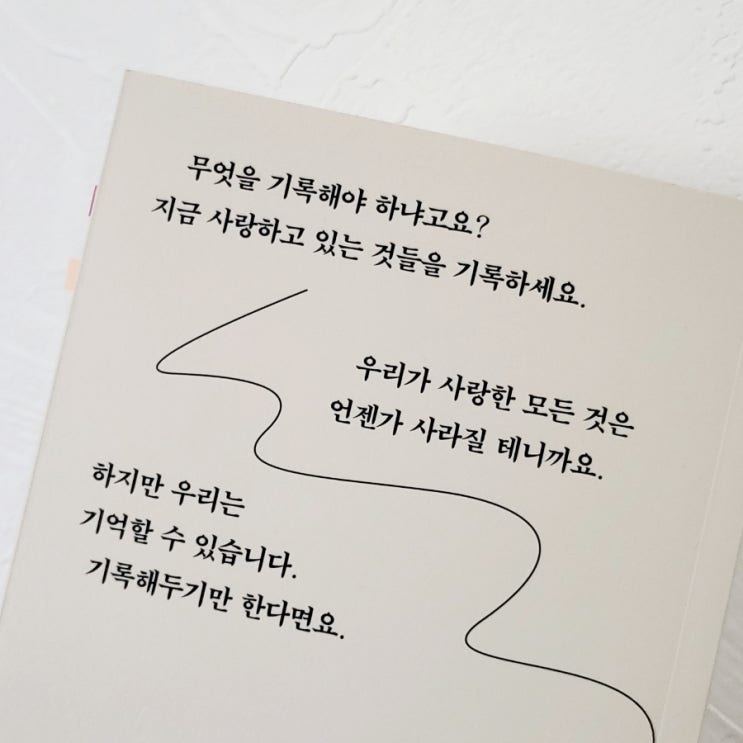 무엇을 기록해야 하냐고요?
지금 사랑하고 있는 것들을 기록하세요.
우리가 사랑한 모든 것은
언젠가 사라질 테니까요.
하지만 우리는
기억할 수 있습니다.
기록해두기만 한다면요.